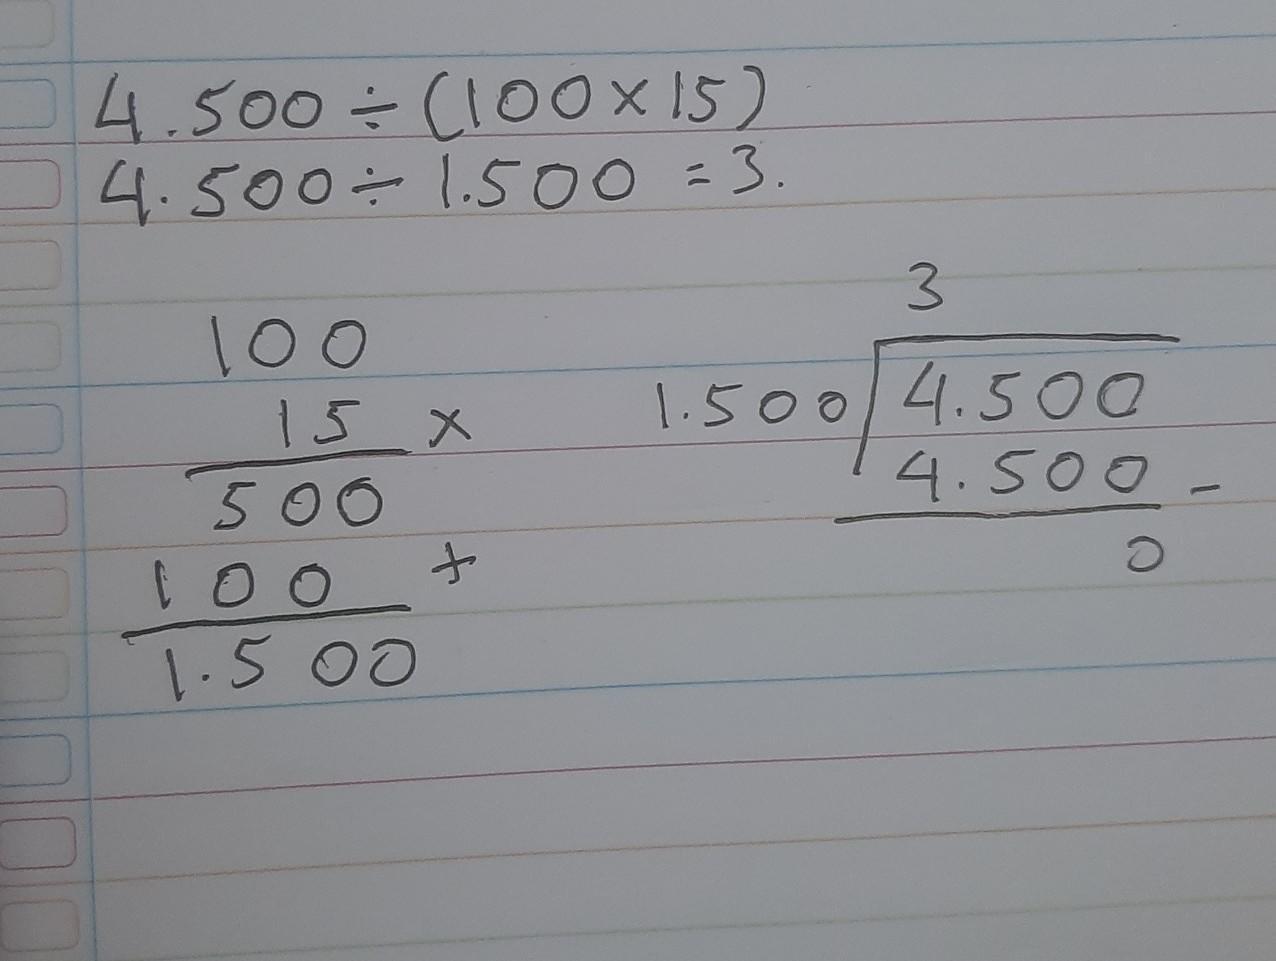 4.500 ÷ (100 × 15)
4.500 ÷ 1.500 = 3.
100
15 ×
500
100 +
1.500
3
1.500 4.500
4.500 -
0